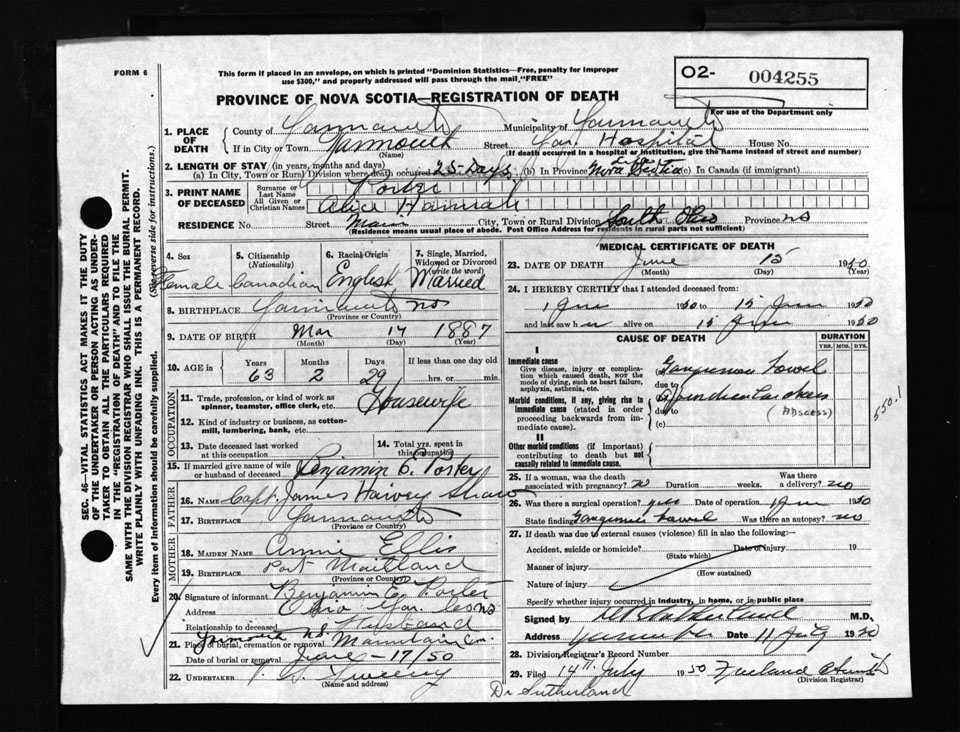 FORM 6
This form if placed in an envelope, on which is printed "Dominion Statistics—Free, penalty for improper
use $300," and properly addressed will pass through the mail "FREE"
O2- 004255
For use of the Department only
PROVINCE OF NOVA SCOTIA—REGISTRATION OF DEATH
1. PLACE OF DEATH { County of Yarmouth Municipality of Yarmouth
If in City or Town Yarmouth Street Yar Hospital House No.
(Name) (If death occurred in a hospital or institution, give the name instead of street and number)
2. LENGTH OF STAY (in years, months and days)
(a) In City, Town or Rural Division where death occurred 25-Days (b) In Province Life Nova Scotia (c) In Canada (if immigrant)
3. PRINT NAME OF DECEASED { Surname or Last Name Porter
All Given or Christian Names Alice Hannah
RESIDENCE No. Street Main City, Town or Rural Division South Ohio Province NS
(Residence means usual place of abode. Post Office Address for residents in rural parts not sufficient)
4. Sex Female
5. Citizenship (Nationality) Canadian
6. Racial Origin English
7. Single, Married, Widowed or Divorced (write the word) Married
8. BIRTHPLACE Yarmouth NS
(Province or Country)
9. DATE OF BIRTH Mar 17 1887
(Month) (Day) (Year)
10. AGE in { Years 63 Months 2 Days 29 If less than one day old
hrs. or min.
OCCUPATION
11. Trade, profession, or kind of work as spinner, teamster, office clerk, etc. Housewife
12. Kind of industry or business, as cotton-mill, lumbering, bank, etc.
13. Date deceased last worked at this occupation
14. Total yrs. spent in this occupation
15. If married give name of wife or husband of deceased Benjamin E. Porter
FATHER
16. NAME Capt. James Harvey Shaw
17. BIRTHPLACE Yarmouth
(Province or Country)
MOTHER
18. MAIDEN NAME Annie Ellis
19. BIRTHPLACE Port Maitland
(Province or Country)
20. Signature of informant Benjamin E. Porter
Address Ohio Yar. Co NS
Relationship to deceased Husband
21. Place of burial, cremation or removal Yarmouth N.S. Mountain Cem.
Date of burial or removal June - 17/50
22. UNDERTAKER Sweeny
(Name and address)
MEDICAL CERTIFICATE OF DEATH
23. DATE OF DEATH June 15 1950
(Month) (Day) (Year)
24. I HEREBY CERTIFY that I attended deceased from:
1 June 1950 to 15 June 1950
and last saw her alive on 15 June 1950
CAUSE OF DEATH
DURATION
YRS. MOS. DYS.
I
Immediate cause
Give disease, injury or complication which caused death, not the mode of dying, such as heart failure, asphyxia, asthenia, etc.
(a) Gangrenous bowel
due to
Morbid conditions, if any, giving rise to immediate cause (stated in order proceeding backwards from immediate cause).
due to
(Abscess)
(c)
550.1
II
Other morbid conditions (if important) contributing to death but not causally related to immediate cause.
25. If a woman, was the death associated with pregnancy? no Duration weeks. Was there a delivery? no
26. Was there a surgical operation? yes Date of operation 1 June 1950
State finding Gangrenous bowel Was there an autopsy? no
27. If death was due to external causes (violence) fill in also the following:
Accident, suicide or homicide? Date of injury 19
(State which)
Manner of injury
(How sustained)
Nature of injury
Specify whether injury occurred in industry, in home, or in public place
Signed by M.D.
Address Yarmouth Date 11 July 1950
28. Division Registrar's Record Number
29. Filed 14th July 1950
(Division Registrar)
Dr Sutherland
SEC. 46—VITAL STATISTICS ACT MAKES IT THE DUTY
OF THE UNDERTAKER OR PERSON ACTING AS UNDER-
TAKER TO OBTAIN ALL THE PARTICULARS REQUIRED
IN THE "REGISTRATION OF DEATH" AND TO FILE THE
SAME WITH THE DIVISION REGISTRAR WHO SHALL ISSUE THE BURIAL PERMIT.
WRITE PLAINLY WITH UNFADING INK. THIS IS A PERMANENT RECORD.
Every item of information should be carefully supplied.
(See reverse side for instructions.)